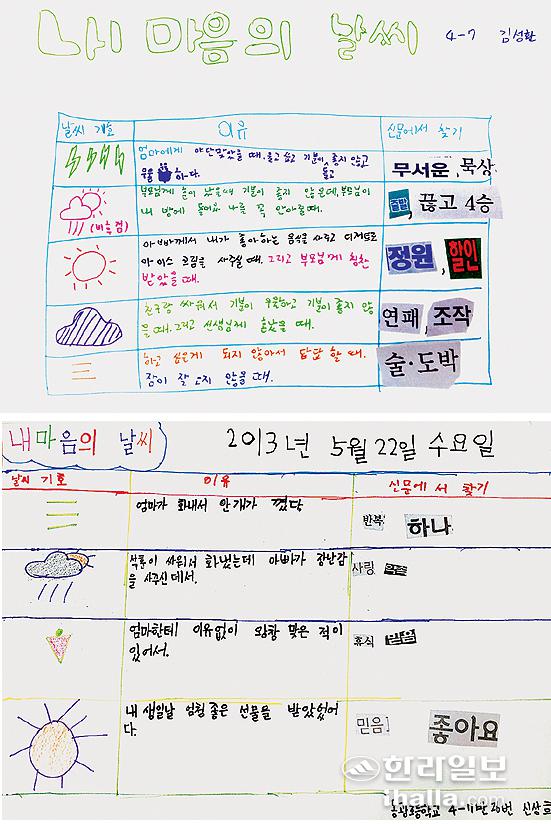 내 마음의 날씨 4-7 김성환
날씨 기호 이유 신문에서 찾기
엄마에게 야단맞았을 때, 울고 싶고 기분이 좋지 않고
우울하다. 무서운, 묵상
(비온후 갬)
부모님께 혼이 났을때 기분이 좋지 않은데, 부모님이
내 방에 들어와 나를 꼭 안아줄때. 끊고 4승
아빠께서 내가 좋아하는 음식을 사주고 디저트로
아이스 크림을 사주실 때. 그리고 부모님께 칭찬
받았을 때. 정원, 할인
친구랑 싸워서 기분이 우울하고 기분이 좋지 않
을 때. 그리고 선생님께 혼났을 때. 연패, 조작
하고 싶은게 되지 않아서 답답 할 때.
잠이 잘 오지 않을 때. 술·도박
내마음의 날씨 2013년 5월 22일 수요일
날씨 기호 이유 신문에서 찾기
엄마가 화내서 안개가 꼈당 반복 하나
싸워서 화났는데 아빠가 장난감
을 사주신데서. 사랑
엄마한테 이유없이 왕창 맞은 적이
있어서. 휴식
내 생일날 엄청 좋은 선물을 받았었어
다. 믿음 좋아요
한라일보
ihalla.com
4-11반 신상